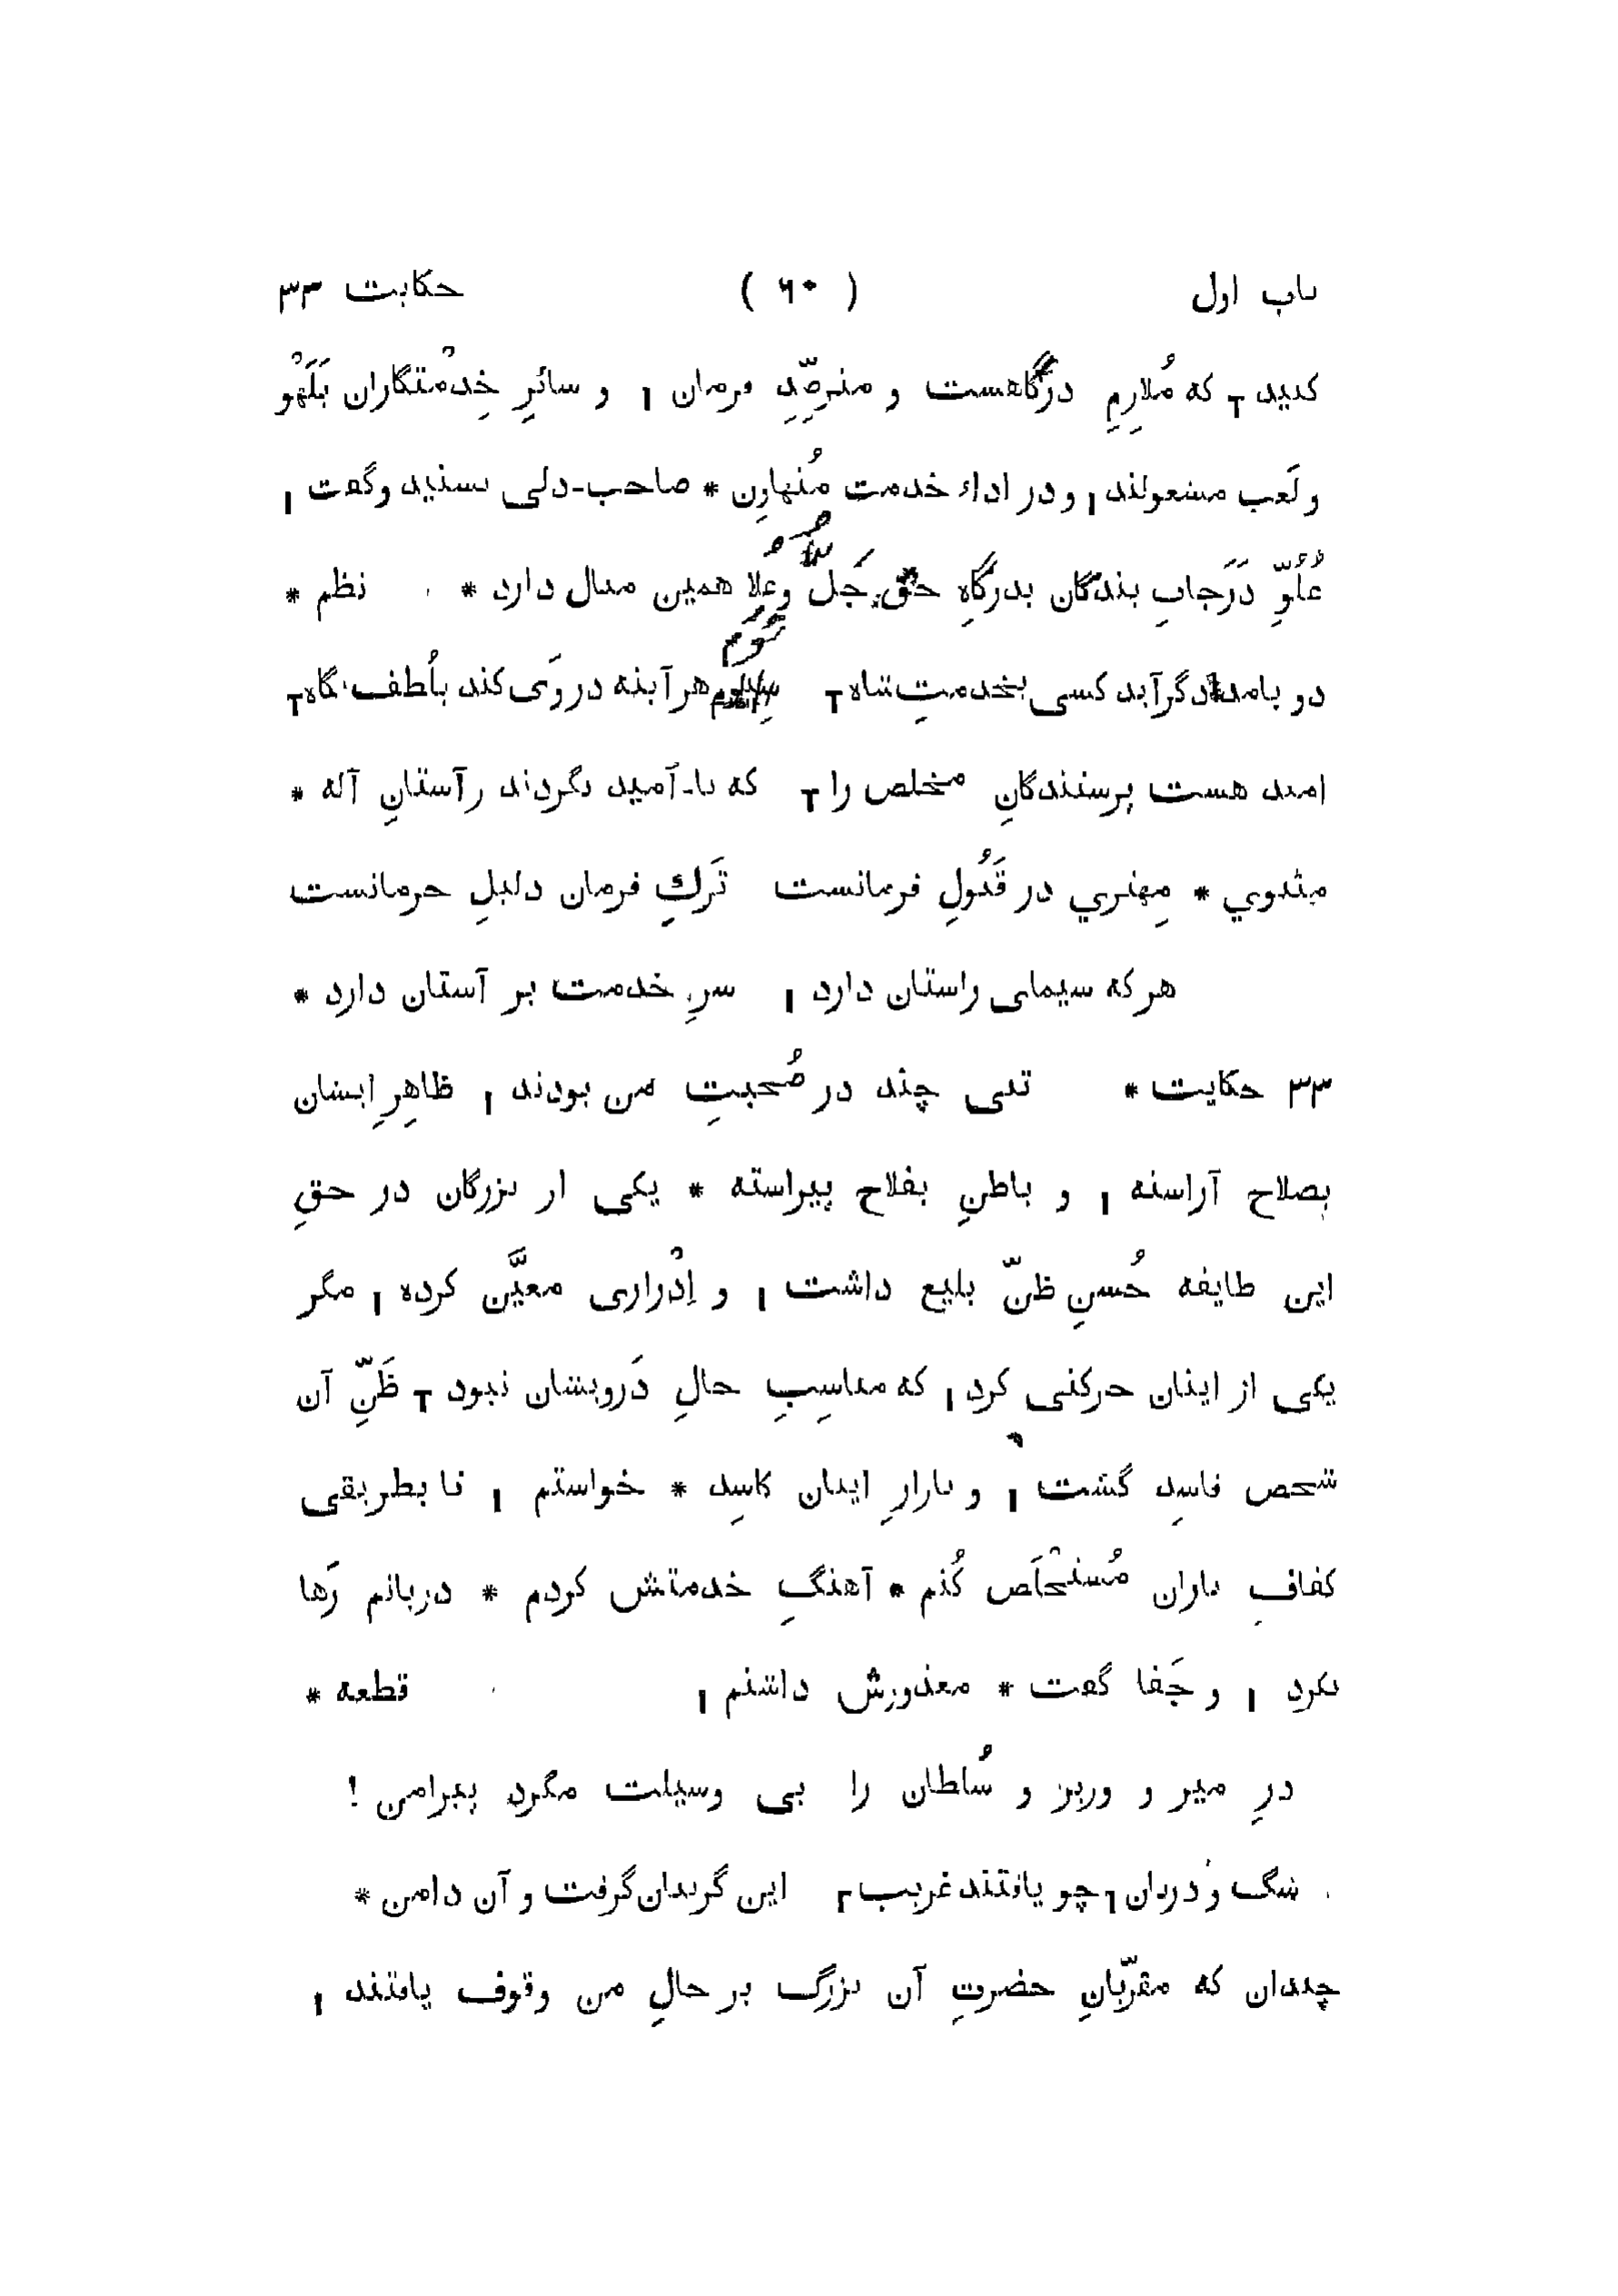 باب اول ( ۶۰ ) حکایت ۳۳
کنید که مُلازِمِ درگاهست و مترصِّدِ فرمان و سائرِ خِدْمتگاران بَلَهْو
و لَعب مشغولند و در اداء خدمت مُتهاوِن * صاحب-دلی بشنید وگفت
عُلُوِّ دَرَجاتِ بندگان بدرگاهِ حق جَلَّ وعَلا همین مثال دارد * نظم *
دو بامداد گر آید کسی بخدمتِ شاه سِیُوم هرآینه در وَی کند بلُطف نگاه
امید هست پرستندگانِ مخلص را که نا-اُمید نگردند زآستانِ آله *
مثنوي * مِهتري در قَبُولِ فرمانست تَركِ فرمان دلیلِ حرمانست
هر که سیمای راستان دارد سرِ خدمت بر آستان دارد *
۳۳ حکایت * تنی چند در صُحبتِ من بودند ظاهِرِ ایشان
بصلاح آراسته و باطنِ بفلاح پیراسته * یکی از بزرگان در حقِ
این طایفه حُسنِ ظنّ بلیغ داشت و اِدْراری معیَّن کرده مگر
یکی از اینان حرکتی کرد که مناسِبِ حالِ دَرویشان نبود ظَنِّ آن
شخص فاسِد گشت و بازارِ اینان کاسِد * خواستم تا بطریقی
کفافِ یاران مُستخْلَص کُنم * آهنگِ خدمتش کردم * دربانم رَها
نکرد و جَفا گفت * معذورش داشتم قطعه *
درِ میر و وزیر و سُلطان را بی وسیلت مگرد پیرامن !
سگ و دربان چو یافتند غریب این گریبان گرفت و آن دامن *
چندان که مقرّبانِ حضرتِ آن بزرگ بر حالِ من وقوف یافتند